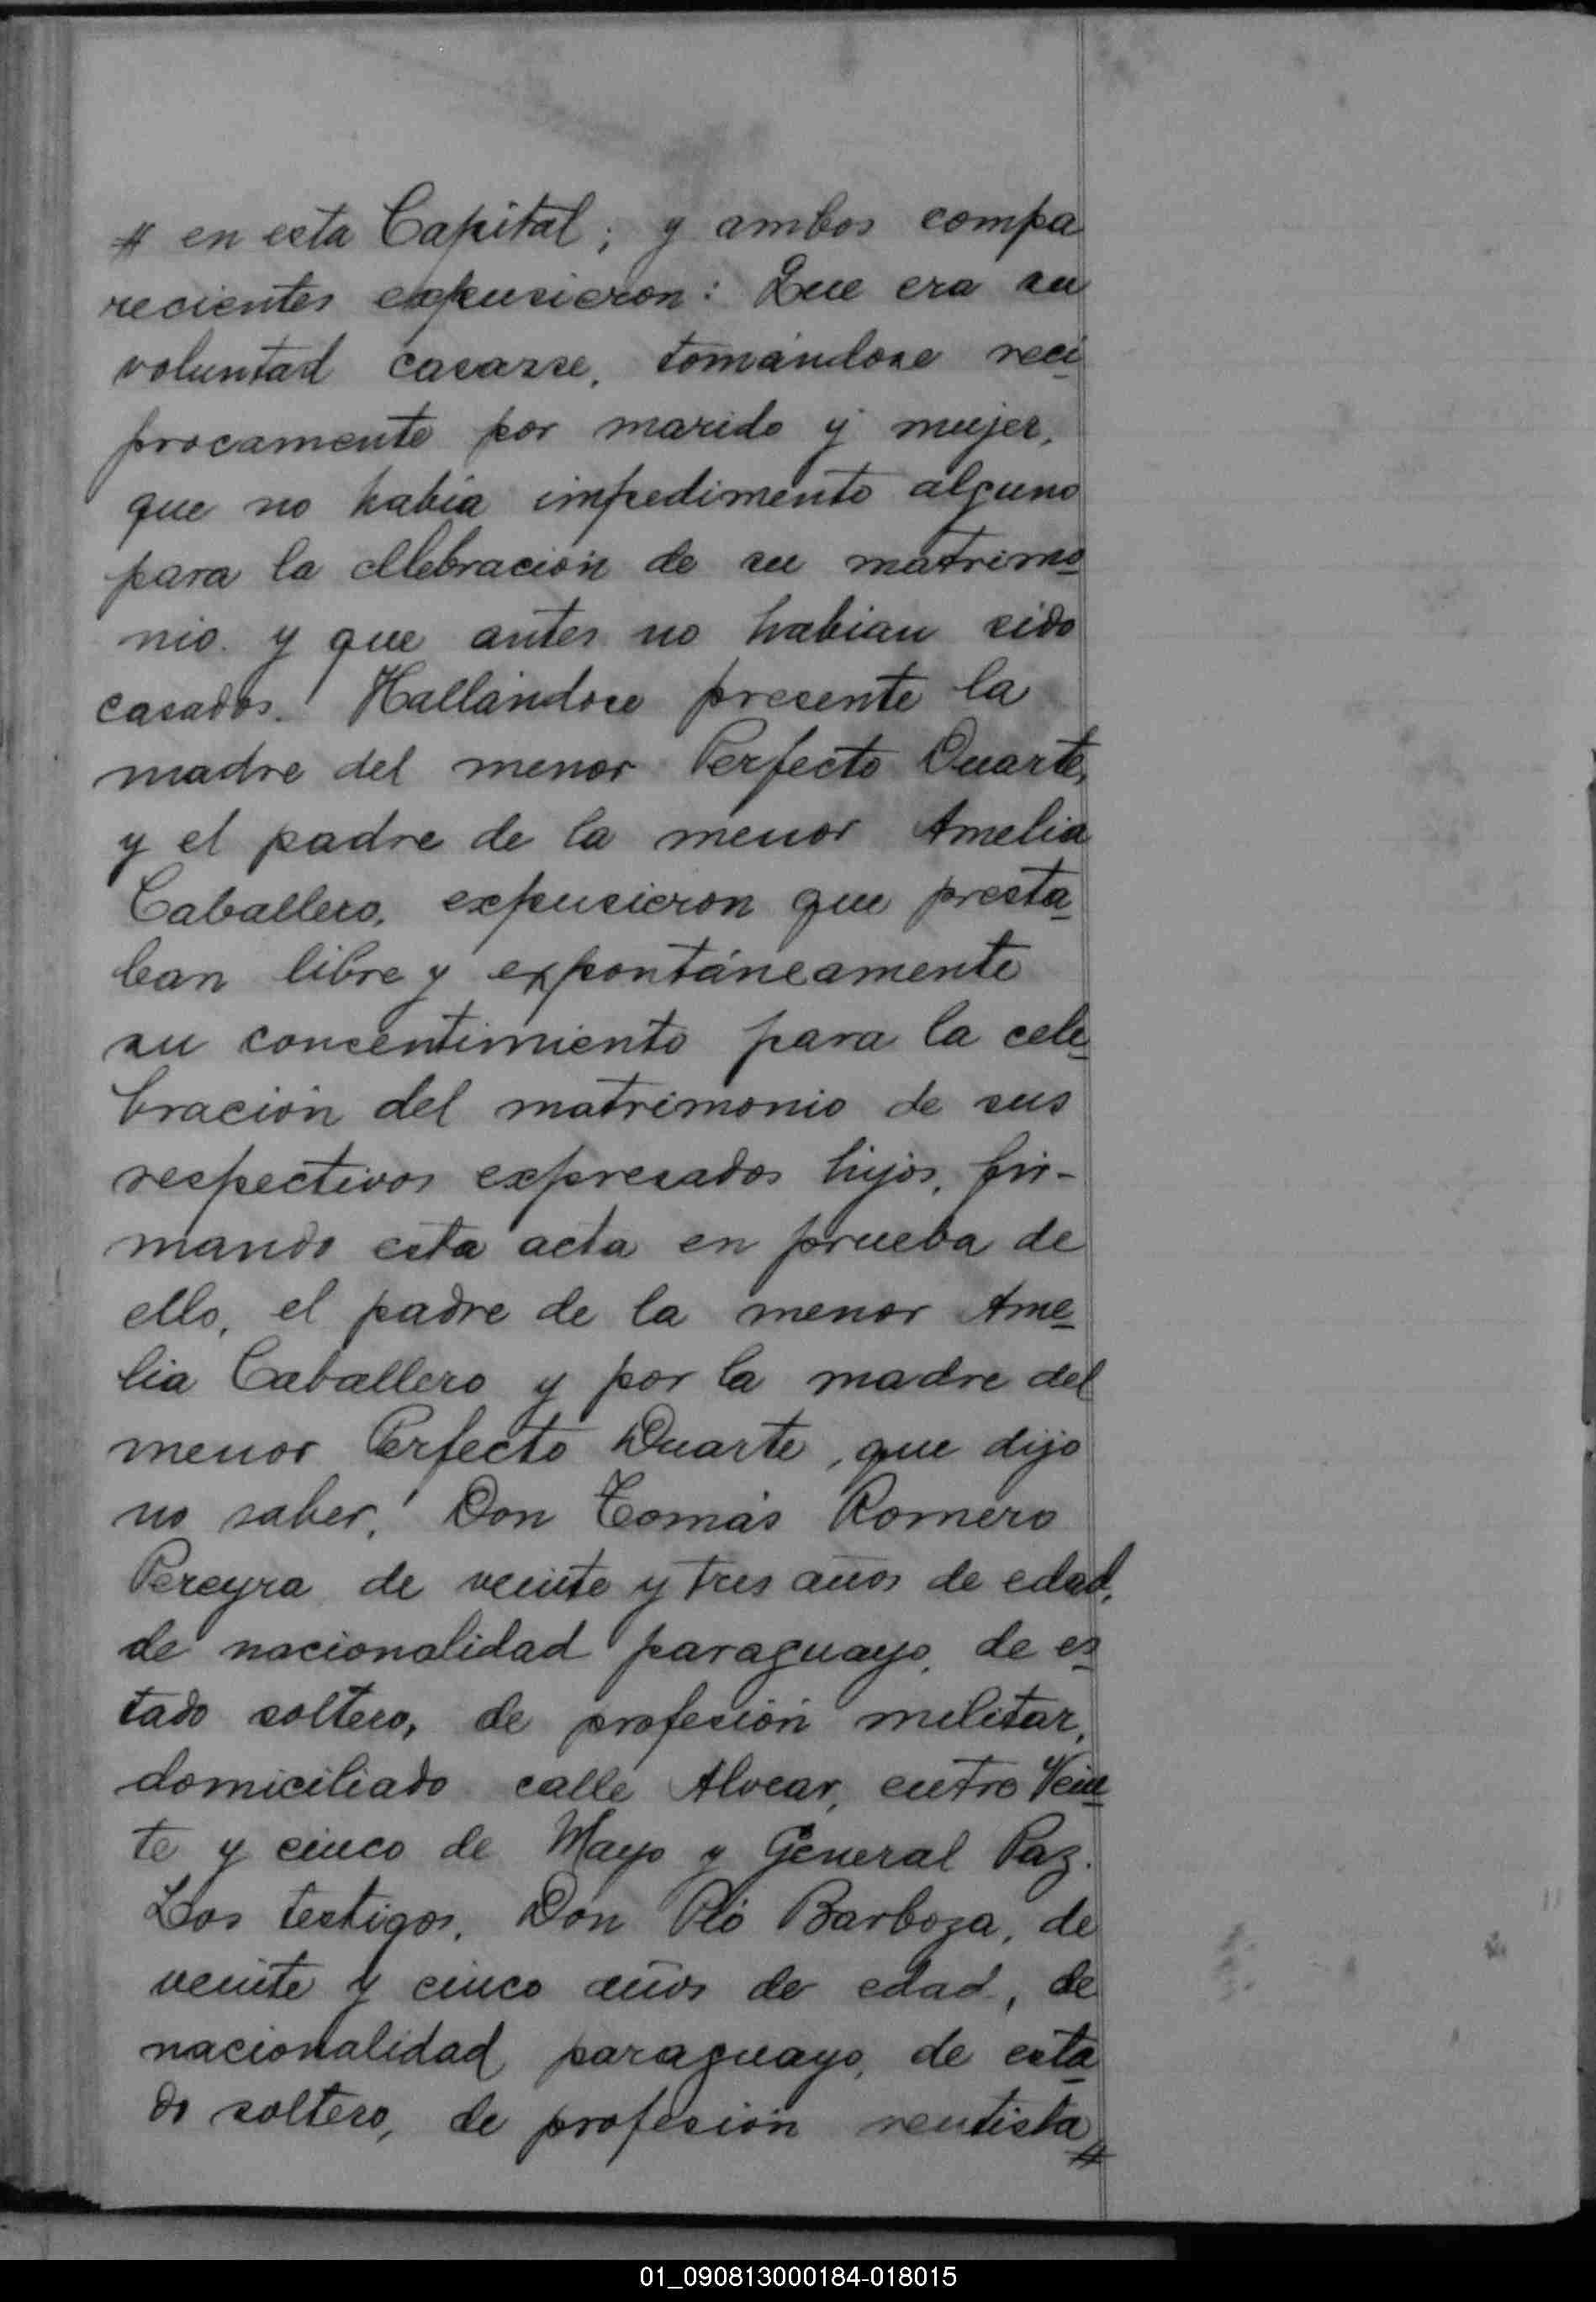 # en esta Capital; y ambos compa
recientes expusieron: Que era su
voluntad casarse, tomándose reci
procamente por marido y mujer,
que no había impedimento alguno
para la cllebración de su matrimo
nio y que antes no habian sido
casados. Hallándose presente la
madre del menor Perfecto Duarte,
y el padre de la menor Amelia
Caballero, expusieron que presta
ban libre y expontáneamente
su consentimiento para la cele
bración del matrimonio de sus
respectivos expresados hijos, fir-
mando esta acta en prueba de
ello, el padre de la menor Ame
lia Caballero y por la madre del
menor Perfecto Duarte, que dijo
no saber, Don Tomás Romero
Pereyra de veinte y tres años de edad,
de nacionalidad paraguayo, de es
tado soltero, de profesión militar,
domiciliado calle Alvear, entre Vein
te y cinco de Mayo y General Paz.
Los testigos, Don Pío Barboza, de
veinte y cinco años de edad, de
nacionalidad paraguayo, de esta
do soltero, de profesión rentista #
01_090813000184-018015